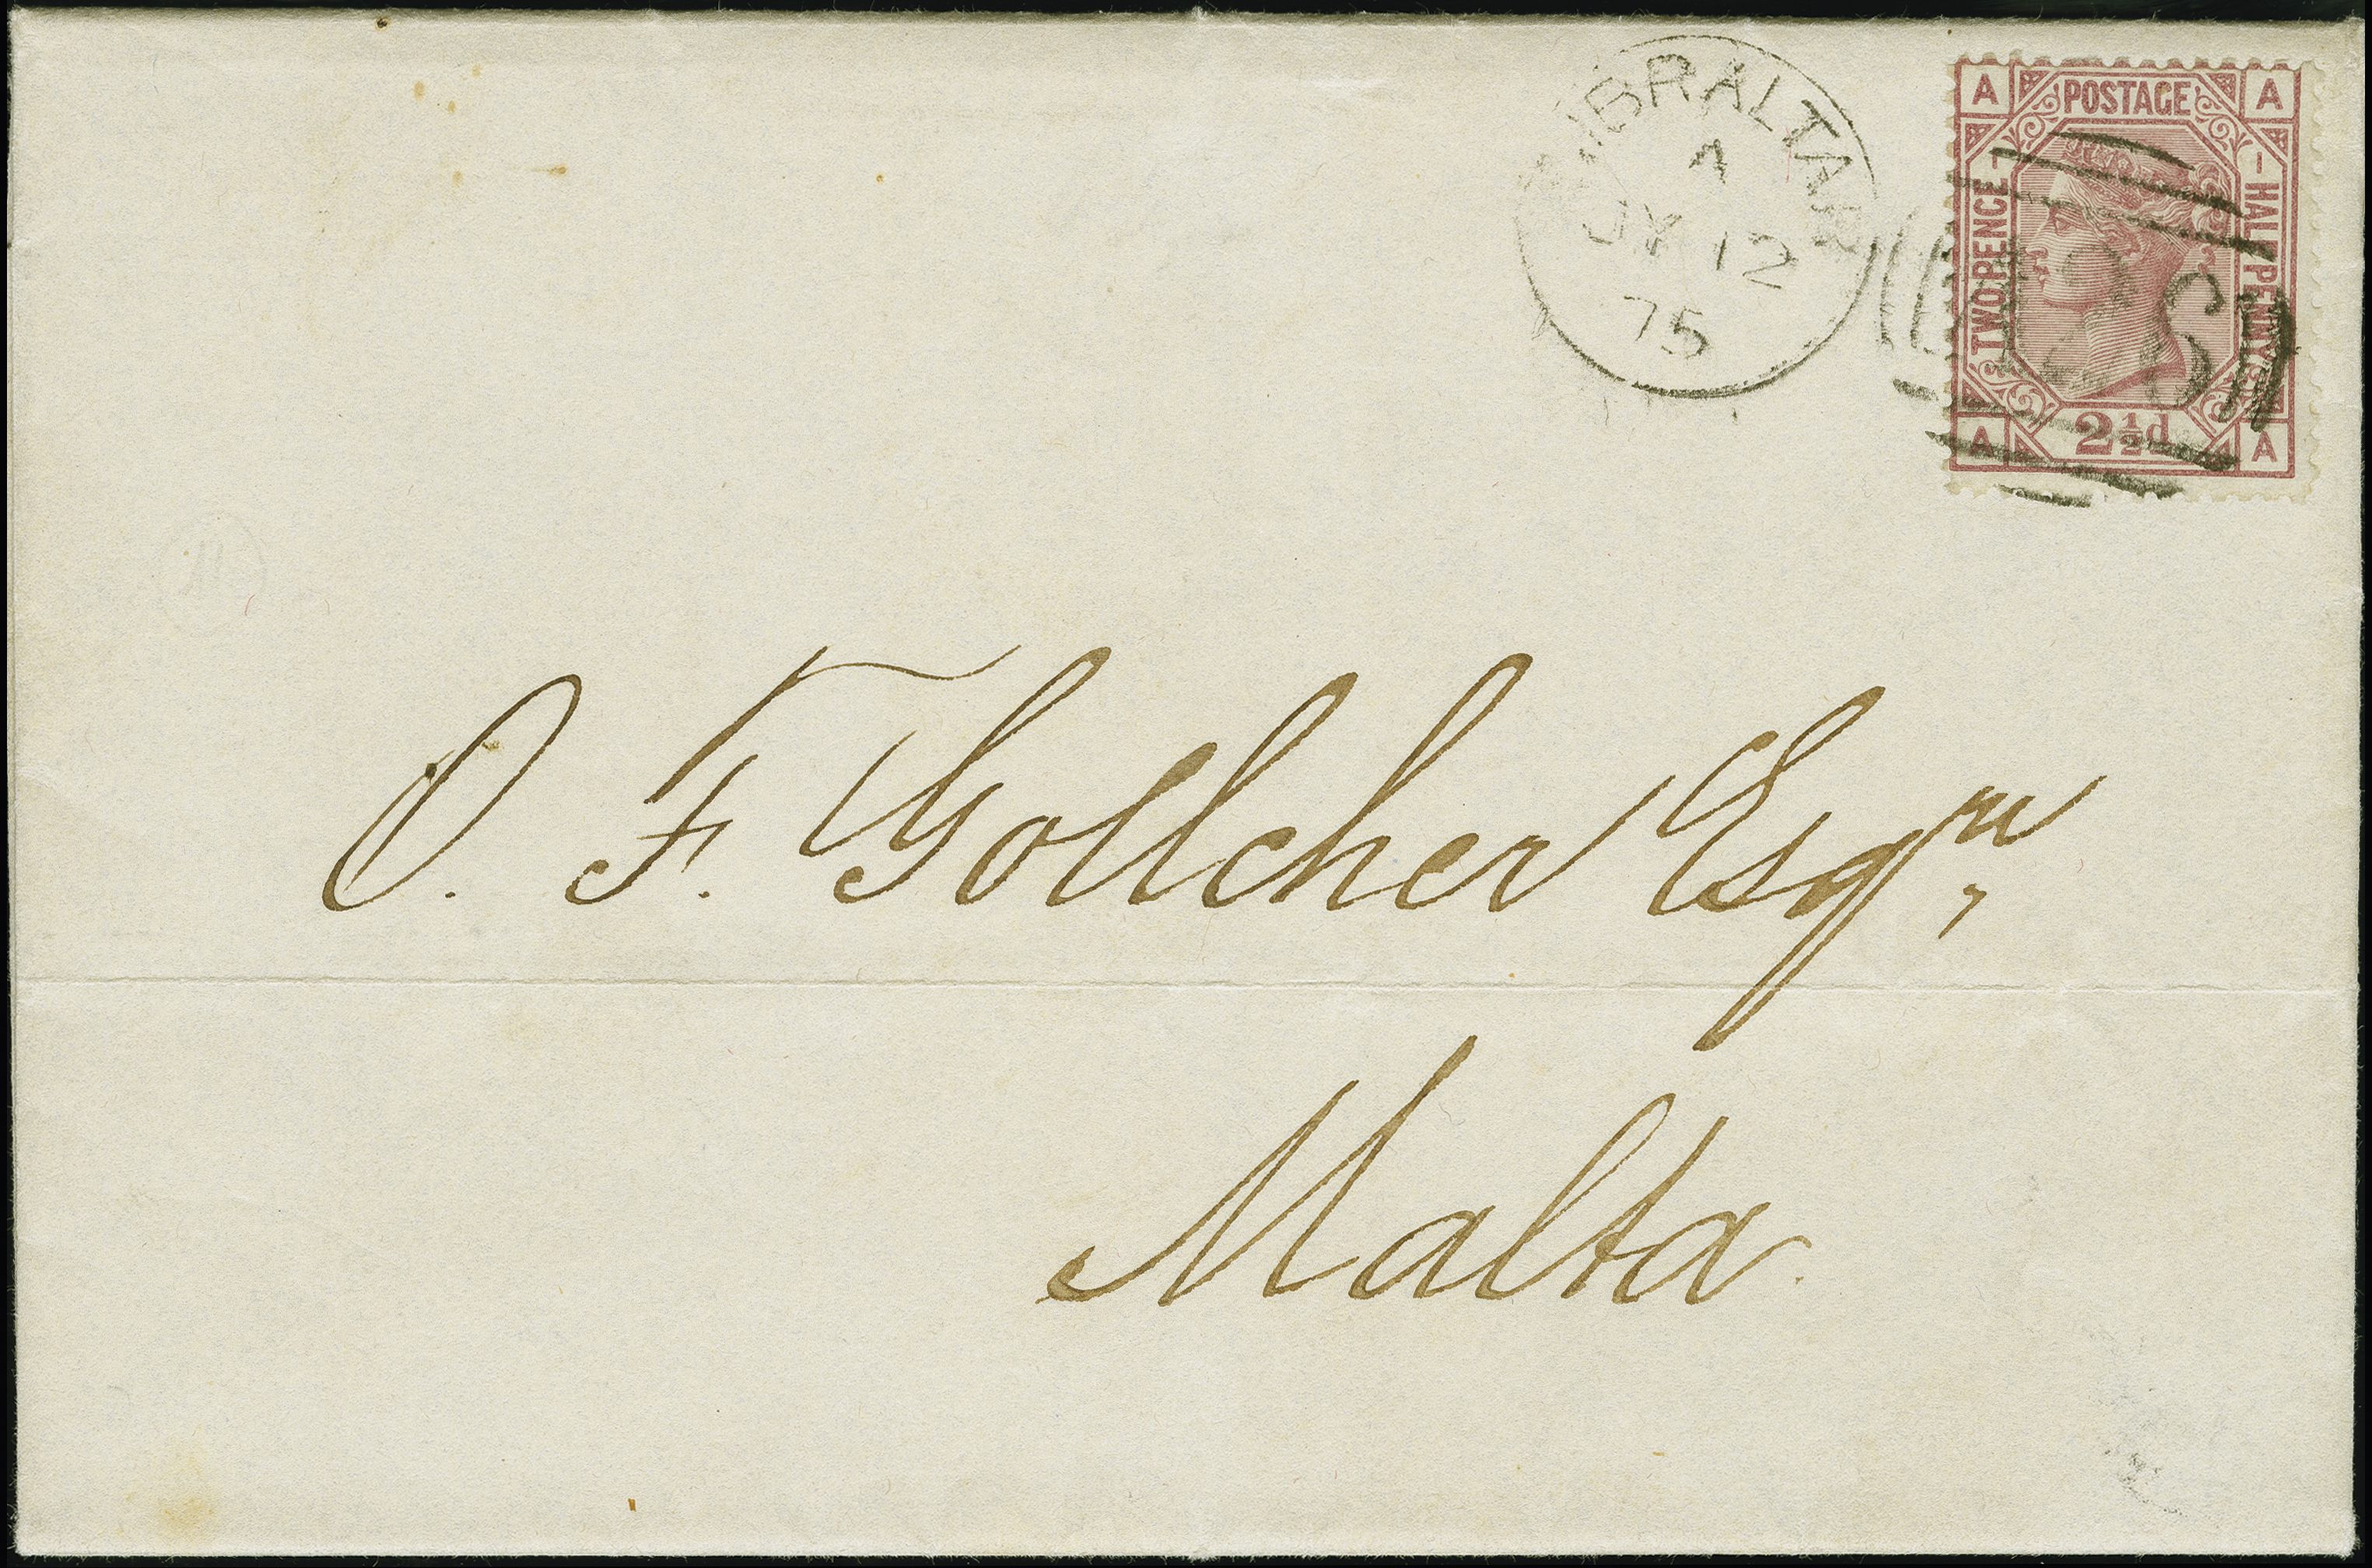 GIBRALTAR
A
JY 12
75
A POSTAGE A
TWO PENCE
HALF PENNY
A 2½d A
O. F. Gollcher Esqre,
Malta.